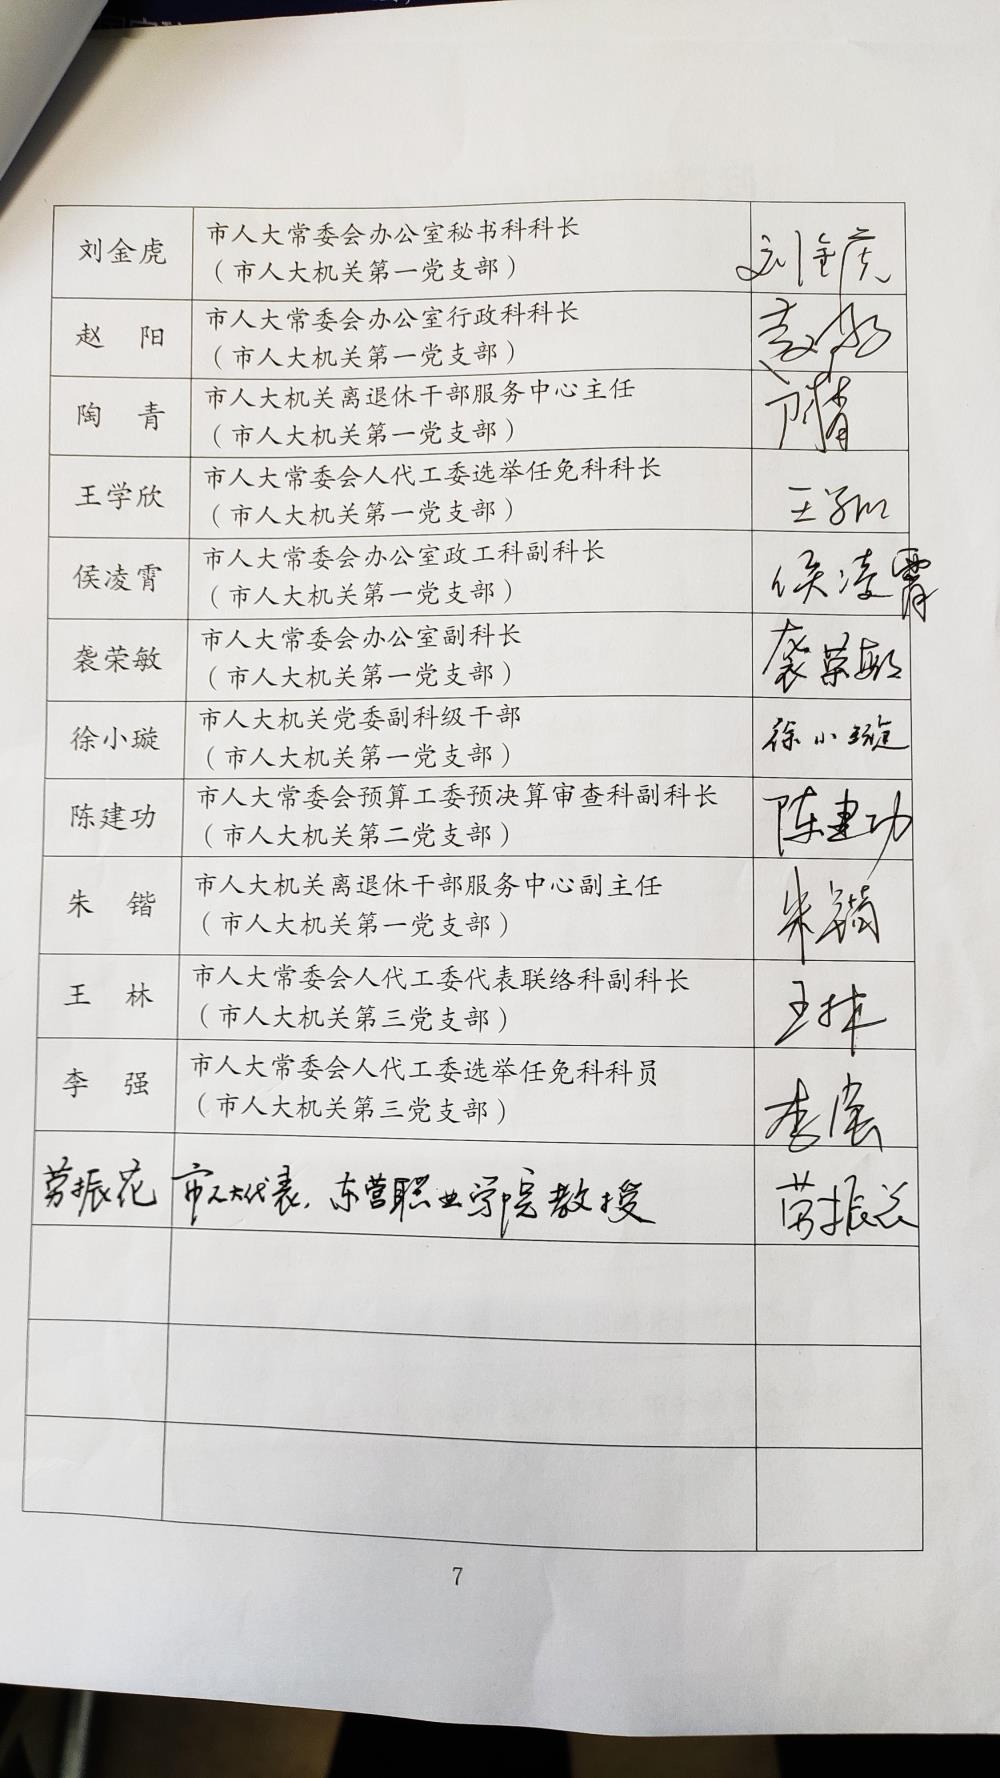 刘金虎
市人大常委会办公室秘书科科长
（市人大机关第一党支部）
刘金虎
赵 阳
市人大常委会办公室行政科科长
（市人大机关第一党支部）
赵阳
陶 青
市人大机关离退休干部服务中心主任
（市人大机关第一党支部）
陶青
王学欣
市人大常委会人代工委选举任免科科长
（市人大机关第一党支部）
王学欣
侯凌霄
市人大常委会办公室政工科副科长
（市人大机关第一党支部）
侯凌霄
袭荣敏
市人大常委会办公室副科长
（市人大机关第一党支部）
袭荣敏
徐小璇
市人大机关党委副科级干部
（市人大机关第一党支部）
徐小璇
陈建功
市人大常委会预算工委预决算审查科副科长
（市人大机关第二党支部）
陈建功
朱 锴
市人大机关离退休干部服务中心副主任
（市人大机关第一党支部）
朱锴
王 林
市人大常委会人代工委代表联络科副科长
（市人大机关第三党支部）
王林
李 强
市人大常委会人代工委选举任免科科员
（市人大机关第三党支部）
李强
劳振花
市人大代表，东营职业学院教授
劳振花
7